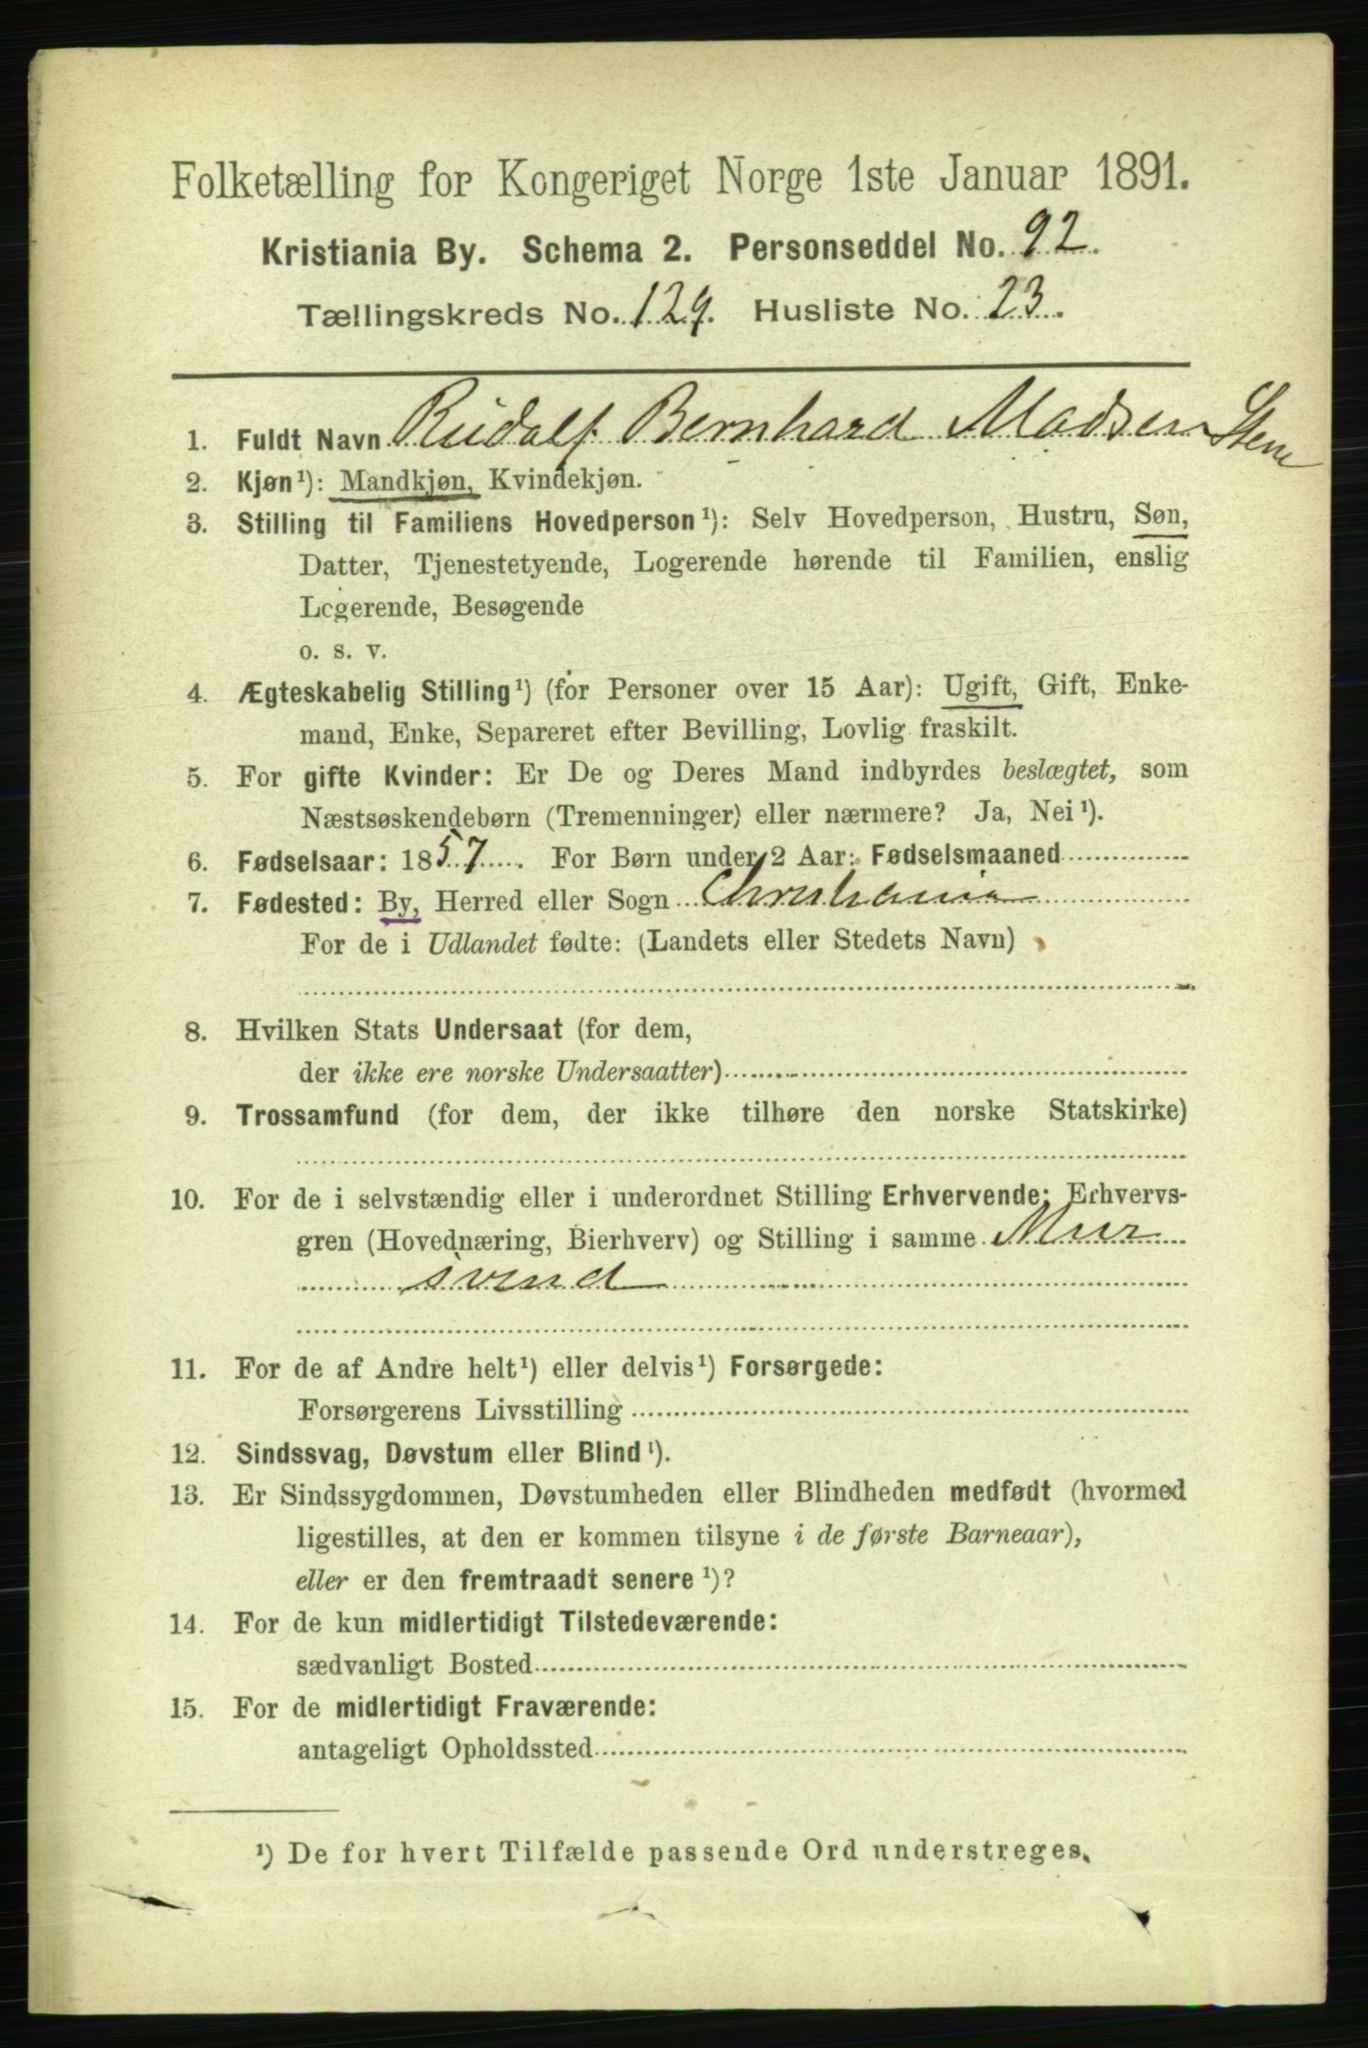 Folketælling for Kongeriget Norge 1ste Januar 1891.
Kristiania By. Schema 2. Personseddel No. 92.
Tællingskreds No. 129. Husliste No. 23.
1. Fuldt Navn Rudolf Bernhard Madsen Stene
2. Kjøn¹): Mandkjøn, Kvindekjøn.
3. Stilling til Familiens Hovedperson¹): Selv Hovedperson, Hustru, Søn,
Datter, Tjenestetyende, Logerende hørende til Familien, enslig
Logerende, Besøgende
o. s. v.
4. Ægteskabelig Stilling¹) (for Personer over 15 Aar): Ugift, Gift, Enke-
mand, Enke, Separeret efter Bevilling, Lovlig fraskilt.
5. For gifte Kvinder: Er De og Deres Mand indbyrdes beslægtet, som
Næstsøskendebørn (Tremenninger) eller nærmere? Ja, Nei¹).
6. Fødselsaar: 1857. For Børn under 2 Aar: Fødselsmaaned
7. Fødested: By, Herred eller Sogn Christiania
For de i Udlandet fødte: (Landets eller Stedets Navn)
8. Hvilken Stats Undersaat (for dem,
der ikke ere norske Undersaatter)
9. Trossamfund (for dem, der ikke tilhøre den norske Statskirke)
10. For de i selvstændig eller i underordnet Stilling Erhvervende: Erhvervs-
gren (Hovednæring, Bierhverv) og Stilling i samme Mur
svend
11. For de af Andre helt¹) eller delvis¹) Forsørgede:
Forsørgerens Livsstilling
12. Sindssvag, Døvstum eller Blind¹).
13. Er Sindssygdommen, Døvstumheden eller Blindheden medfødt (hvormed
ligestilles, at den er kommen tilsyne i de første Barneaar),
eller er den fremtraadt senere¹)?
14. For de kun midlertidigt Tilstedeværende:
sædvanligt Bosted
15. For de midlertidigt Fraværende:
antageligt Opholdssted
¹) De for hvert Tilfælde passende Ord understreges.